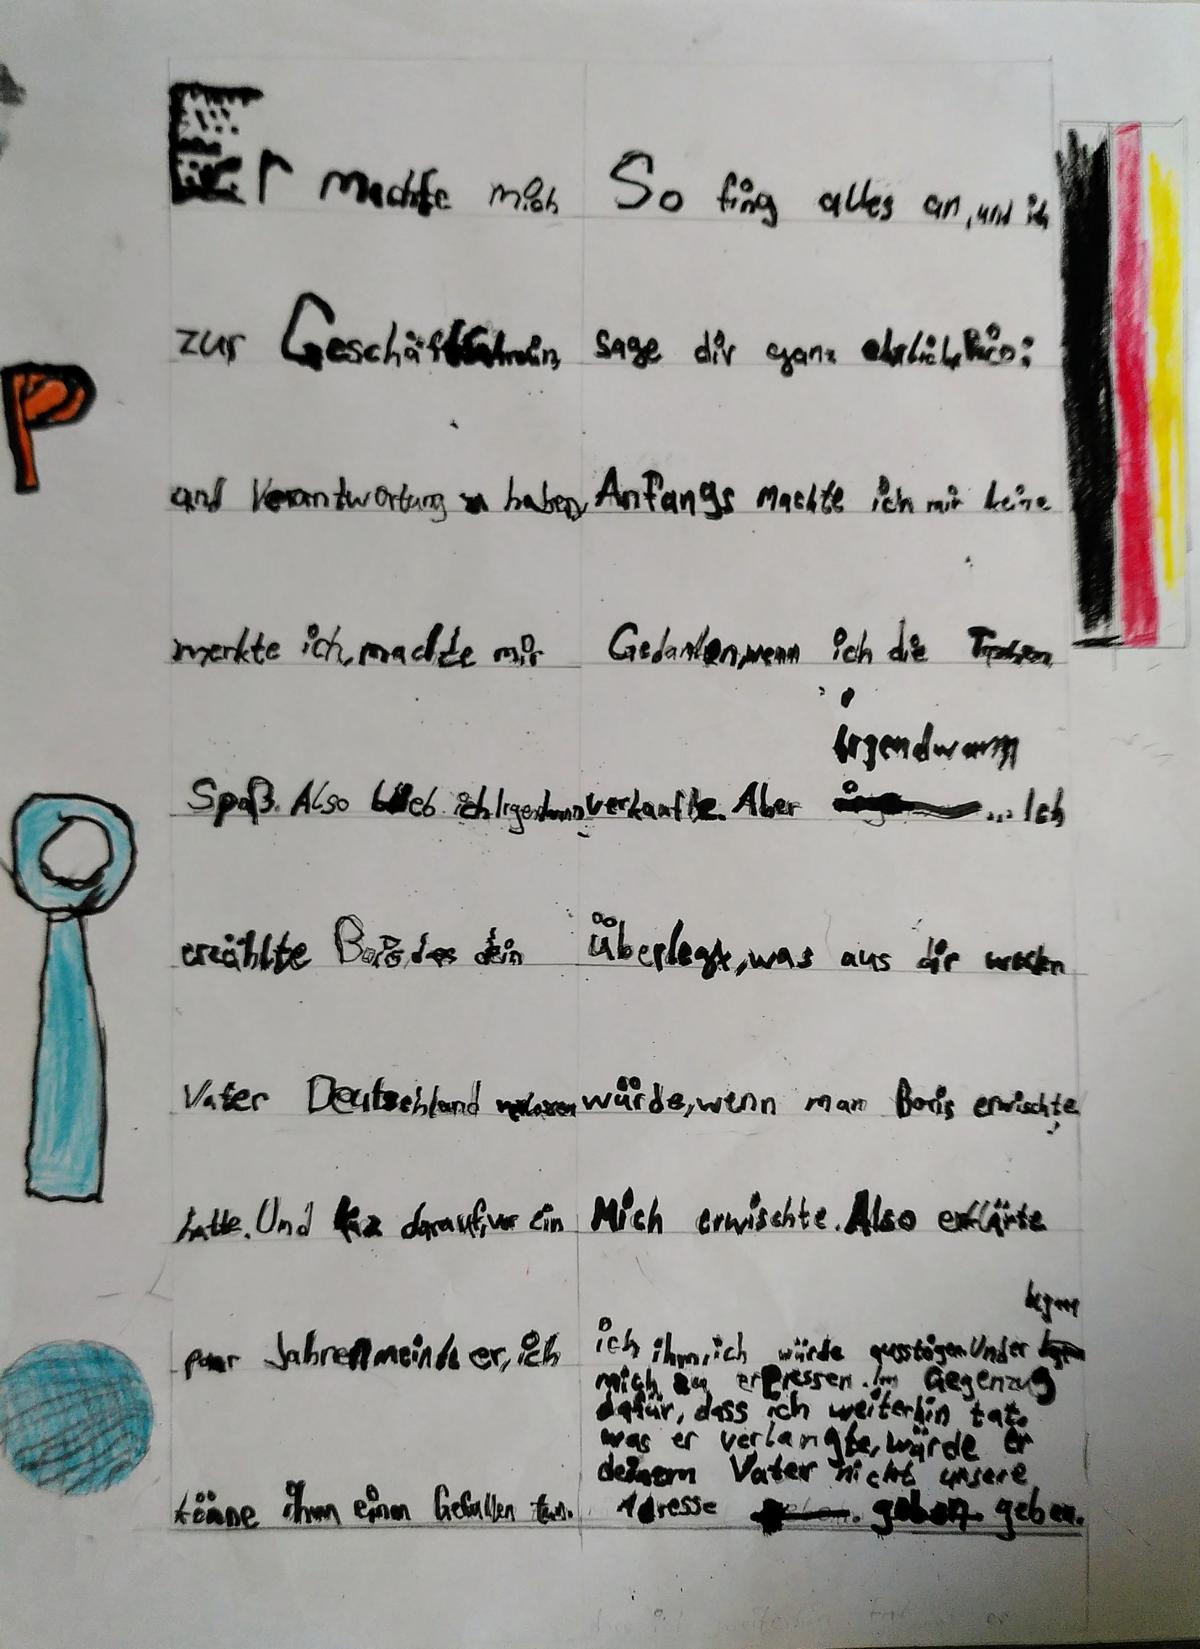 Er machte mich
zur Geschäftsführerin,
und Verantwortung zu haben,
merkte ich, machte mir
Spaß. Also blieb ich. Irgendwann
erzählte Boris, das dein
Vater Deutschland verlassen
hatte. Und kurz darauf, vor ein
paar Jahren meinte er, ich
könne ihm einen Gefallen tun.
So fing alles an, und ich
sage dir ganz ehrlich
Anfangs machte ich mir keine
Gedanken, wenn ich die Taschen
verkaufte. Aber irgendwann ... Ich
überlegte, was aus dir werden
würde, wenn man Boris erwischte,
Mich erwischte. Also erklärte
ich ihm, ich würde aussteigen Und er begann
mich zu erpressen. Im Gegenzug
dafür, dass ich weiterhin tat,
was er verlangte, würde er
deinem Vater nicht unsere
Adresse geben. geben.
P